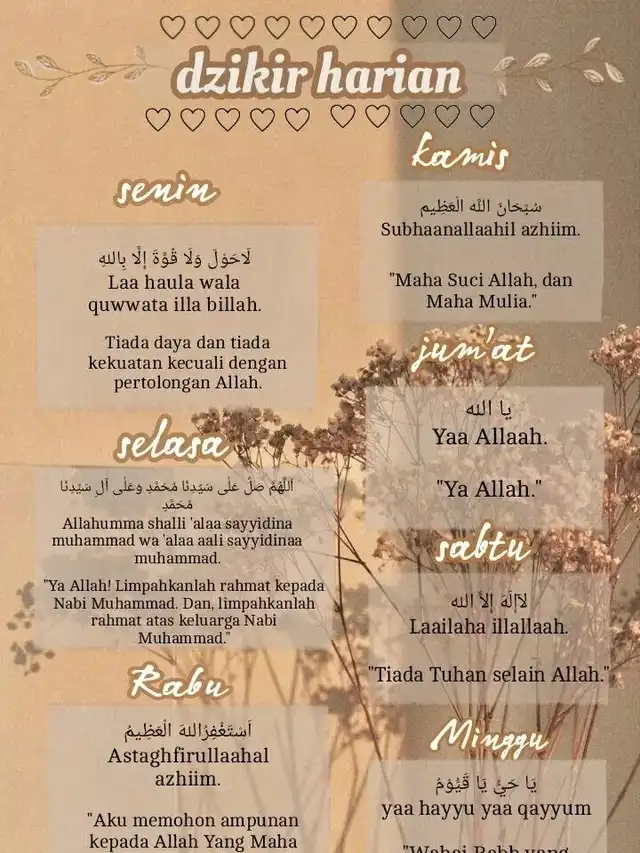 dzikir harian
senin
لَاحَوْلَ وَلَا قُوَّةَ إِلَّا بِاللهِ
Laa haula wala
quwwata illa billah.
Tiada daya dan tiada
kekuatan kecuali dengan
pertolongan Allah.
selasa
اَللّٰهُمَّ صَلِّ عَلٰى سَيِّدِنَا مُحَمَّدٍ وَعَلٰى آلِ سَيِّدِنَا
مُحَمَّدٍ
Allahumma shalli 'alaa sayyidina
muhammad wa 'alaa aali sayyidinaa
muhammad.
"Ya Allah! Limpahkanlah rahmat kepada
Nabi Muhammad. Dan, limpahkanlah
rahmat atas keluarga Nabi
Muhammad."
Rabu
اَسْتَغْفِرُاللهَ الْعَظِيْمُ
Astaghfirullaahal
azhiim.
"Aku memohon ampunan
kepada Allah Yang Maha
kamis
سُبْحَانَ اللّٰه الْعَظِيْم
Subhaanallaahil azhiim.
"Maha Suci Allah, dan
Maha Mulia."
jum'at
يا الله
Yaa Allaah.
"Ya Allah."
sabtu
لَاإِلَهَ إِلاَّ الله
Laailaha illallaah.
"Tiada Tuhan selain Allah."
Minggu
يَا حَيُّ يَا قَيُّوْمُ
yaa hayyu yaa qayyum
"Wahai Rabb yang